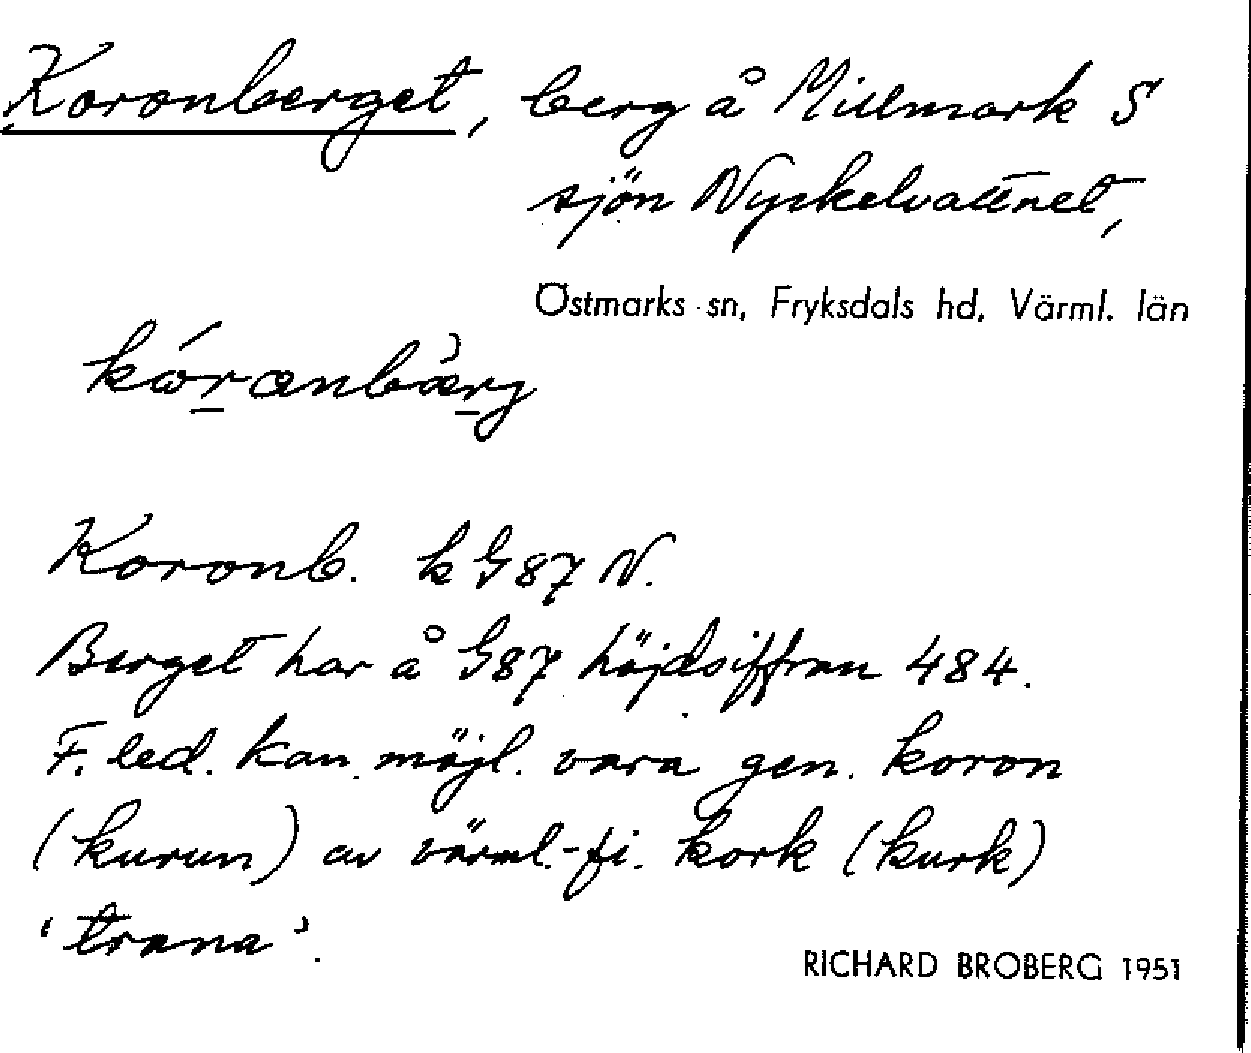 Koronberget, berg å Millmark S
sjön Nyckelvattnet,
Östmarks sn, Fryksdals hd, Värml. län
kóranbærg
Koronb. k G87 N.
Berget har å G87 höjdsiffran 484.
F. led. kan möjl. vara gen. koron
(kurun) av värml.-fi. kork (kurk)
'trana'.
RICHARD BROBERG 1951